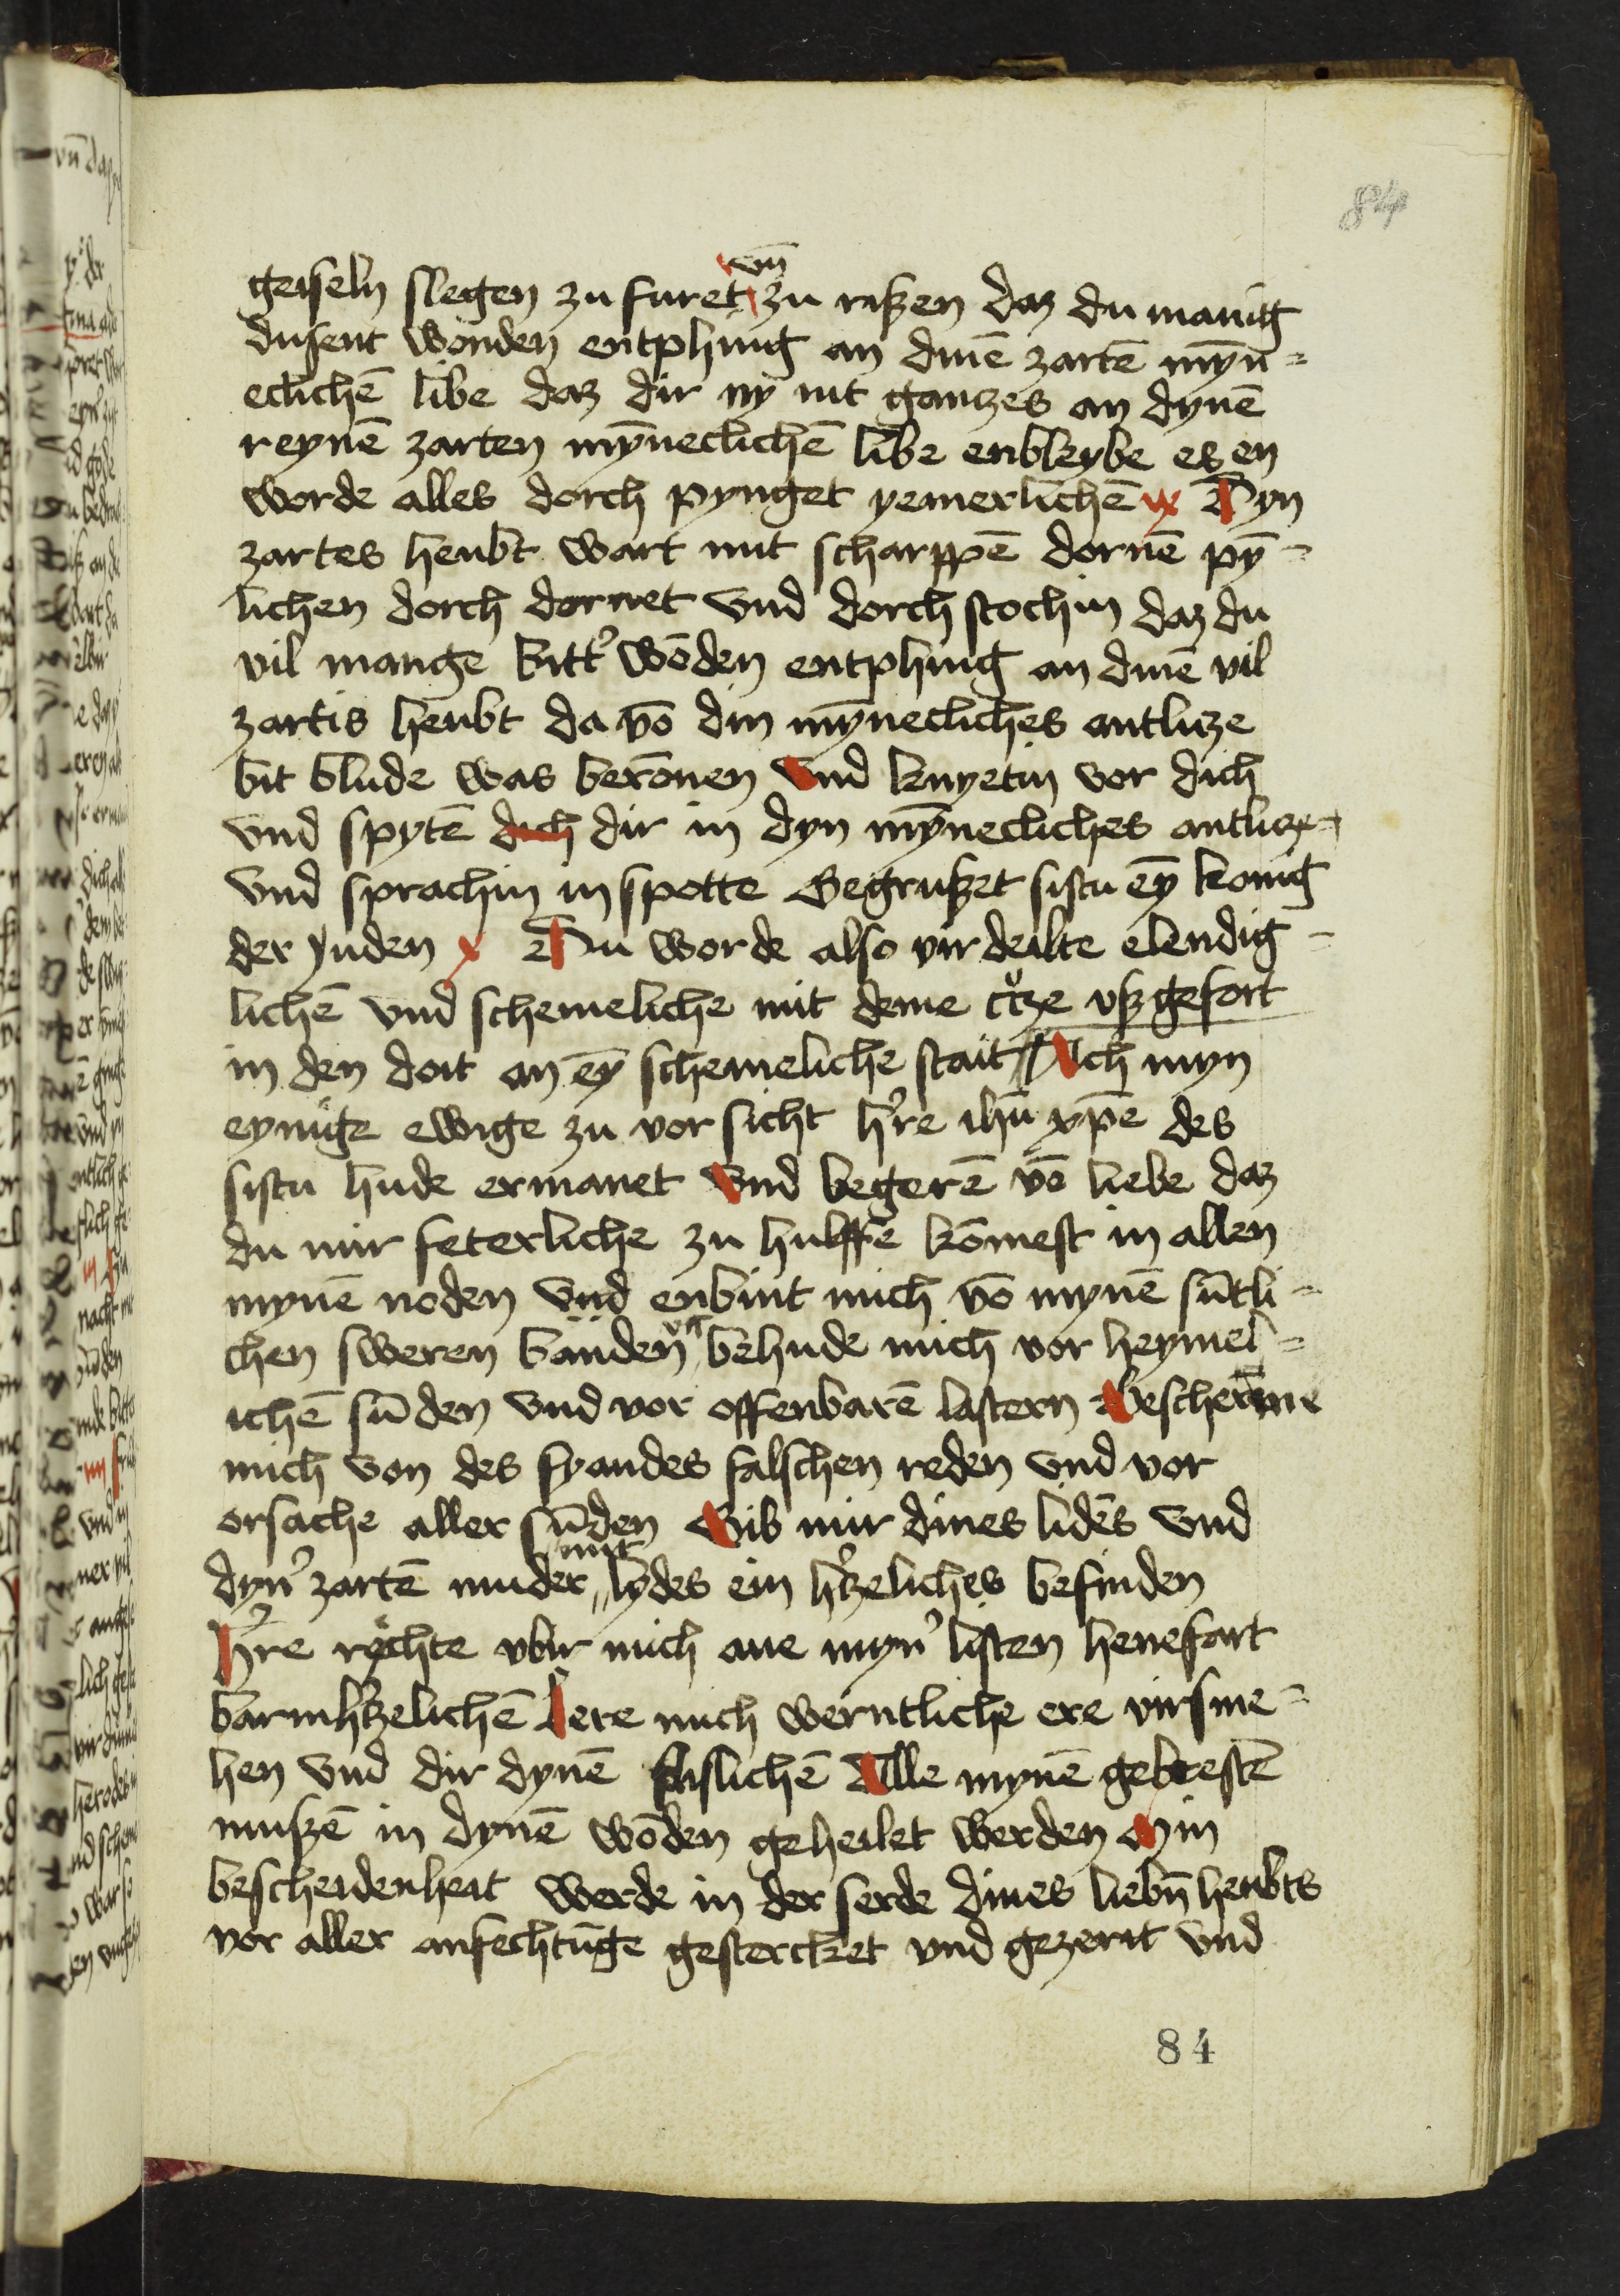 84
geiseln slegen zu furet vn̄ zu rißen daz du manig
dusent wonden entphing an dinē zartē mȳn=
eclichē libe daz dir ny nit gantzes an dynē
reynē zarten mȳneclichē libe enbleybe es en
worde alles dorch pynget yemerlichē ix Dyn
zartes heubt wart mit scharppē dornē pȳ=
lichen dorch dornet vnd dorch stochin daz du
vil mange bitt' wōden entphing an dinē vil
zartis heubt da vō din mȳnecliches antlitze
bit blude was berōnen Vnd knyetin vor dich
vnd spytē dich dir in dyn mȳnecliches antlicze
vnd sprachin in spotte Gegrußet sistu eȳ konig
der Juden x Du worde also vir deilte elendig=
lichē vnd schemeliche mit deme c'tze vßgefort
in den doit an eȳ schemeliche stait Ach myn
eynige ewige zu vor sicht h're ihū xp̄e des
sistu hude ermanet Vnd begerē vō liebe daz
du mir feterliche zu hulffe kōmest in allen
mynē noden vnd enbint mich vō mynē sūtli=
chen sweren banden vn̄ behude mich vor heymel=
ichē sūden vnd vor offenbarē lastern Bescherme
mich von des fyandes falschen reden vnd vor
orsache aller sūden Gib mir dines lidēs vnd
dyn' zartē muder mit lydes ein h'tzeliches befinden
H're rechte vbir mich ane myn' listen henefart
barmh'tzelichē Lere mich werntliche ere virsme=
hen vnd dir dynē flislichē Alle mynē gebrestē
mußē in dynē wōden geheilet werden Min
bescheidenheit werde in der serde dines liebn̄ heubts
vor aller anfechtūge gestercket vnd gezerit vnd
84